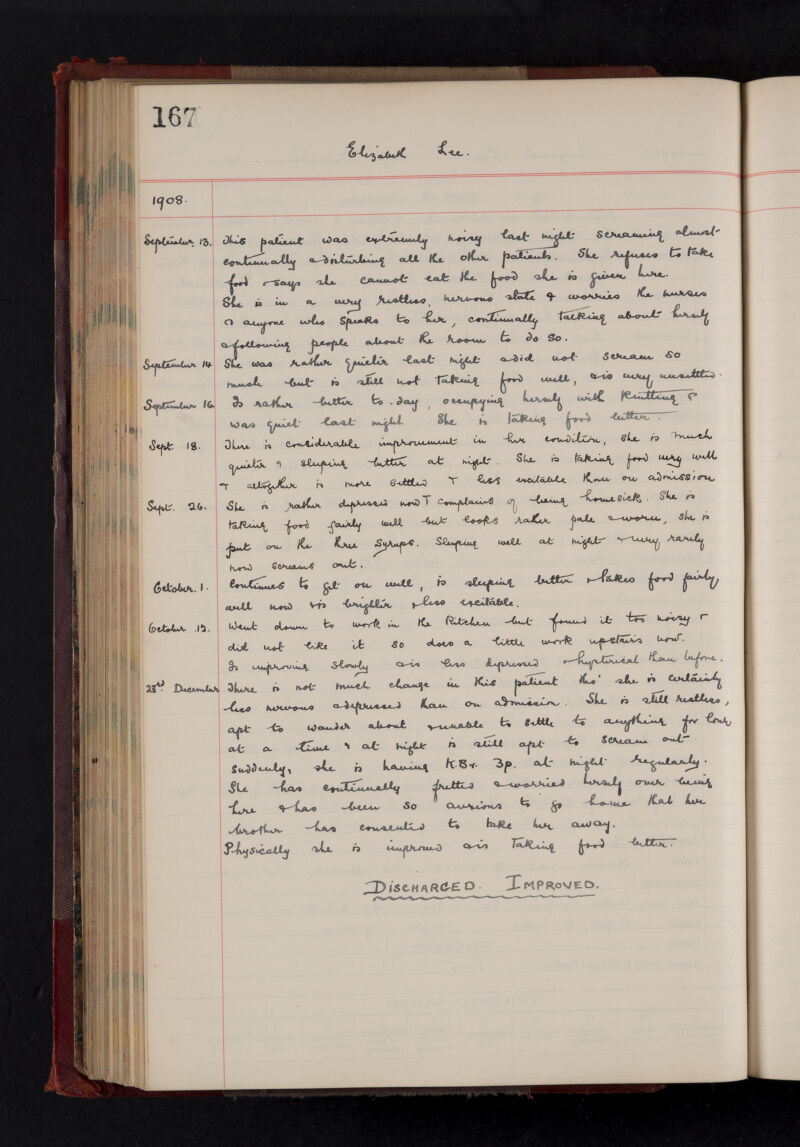 167
Elizabeth Lee.
1908.
September 13. This patient was extremely noisy last night screaming almost
continually & disturbing all the other patients. She refuses to take
food & says she cannot eat the food she is given here.
She is in a very restless, nervous state & worries the nurses
& anyone who speaks to her, continually talking about herself
& following people about the room to do so.
September 14 She was rather quieter last night & did not scream so
much but is still not taking food well, & is very unsettled.
September 16 Is rather better to-day, occupying herself with knitting &
was quiet last night She is taking food better.
Sept. 18. There is considerable improvement in her condition, she is much
quieter & sleeping better at night. She is taking food very well
& altogether is more settled & less excitable than on admission
Sept. 26. She is rather depressed now & complains of being homesick. She is
taking food fairly well but looks rather pale & worn, she is
put on the three syrups. Sleeping well at night & very rarely
now screams out.
October. 1. Continues to get on well, is sleeping better & takes food fairly
well now & is brighter & less excitable.
October. 12. Went down to work in the Kitchen but found it too noisy &
did not like it so does a little work upstairs now.
Is improving slowly & is less depressed & hysterical than before.
28th December There is not much change in this patient tho' she is certainly
less nervous & depressed than on admission. She is still restless,
apt to wander about & unable to settle to anything for long
at a time & at night is still apt to scream out
suddenly, she is having K.Br. at night regularly.
She has continually fretted & worried herself over being
here & has been so anxious to go home that her
brother has consented to take her away.
Physically she is improved & is taking food better.
DISCHARGED. IMPROVED.